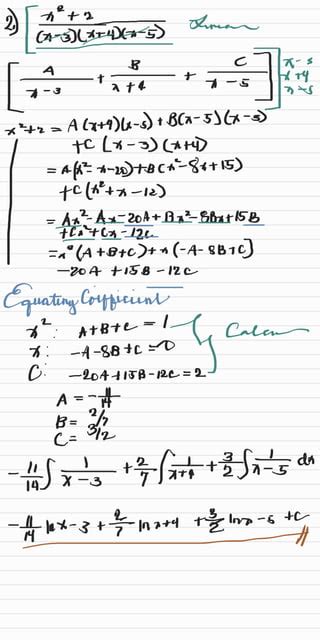 2) x² + 2 / (x-3)(x+4)(x-5) Linear
[ A / x-3 + B / x+4 + C / x-5 ] x-3 x+4 x-5
x²+2 = A(x+4)(x-5) + B(x-5)(x-3)
+C(x-3)(x+4)
= A(x²-x-20)+B(x²-8x+15)
+C(x²+x-12)
= Ax²-Ax-20A+Bx²-8Bx+15B
+Cx²+Cx-12C
= x²(A+B+C)+x(-A-8B+C)
-20A +15B -12C
Equating Coefficient
x²: A+B+C = 1
x: -A-8B+C=0
C: -20A+15B-12C=2
A = -11/14
B = 2/7
C = 3/2
-11/14 ∫ 1/x-3 + 2/7 ∫ 1/x+4 + 3/2 ∫ 1/x-5 dx
-11/14 ln x-3 + 2/7 ln x+4 + 3/2 ln x-5 +C //